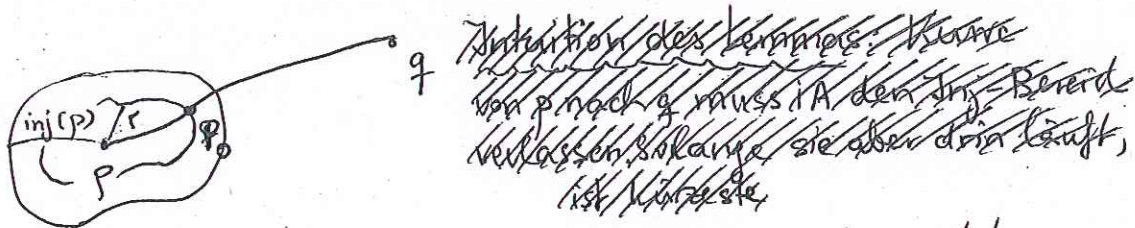 q
Intuition des Lemmas: Kurve
von p nach q muss iA den Inj-Bereich
verlassen, solange sie aber drin läuft,
ist kürzeste
inj(p) r
p p₀